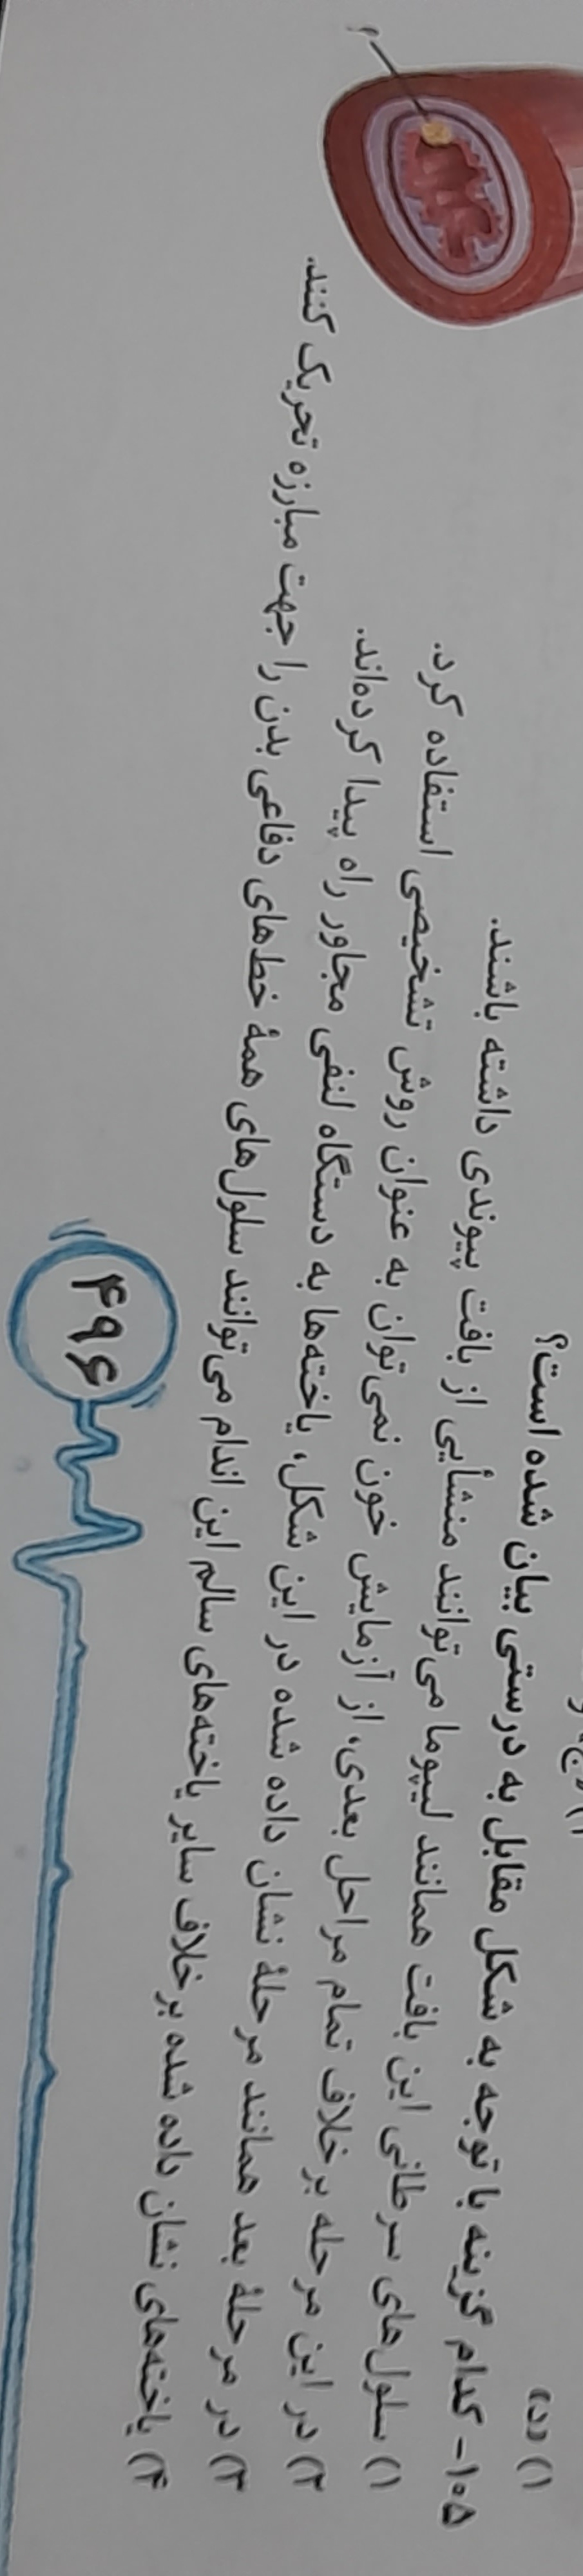 ۱) (د)
۱۰۵- کدام گزینه با توجه به شکل مقابل به درستی بیان شده است؟
۱) سلول‌های سرطانی این بافت همانند لیپوما می‌توانند منشأیی از بافت پیوندی داشته باشند.
۲) در این مرحله برخلاف تمام مراحل بعدی، از آزمایش خون نمی‌توان به عنوان روش تشخیصی استفاده کرد.
۳) در مرحلهٔ بعد همانند مرحلهٔ نشان داده شده در این شکل، یاخته‌ها به دستگاه لنفی مجاور راه پیدا کرده‌اند.
۴) یاخته‌های نشان داده شده برخلاف سایر یاخته‌های سالم این اندام می‌توانند سلول‌های همهٔ خط‌های دفاعی بدن را جهت مبارزه تحریک کنند.
؟
۴۹۶